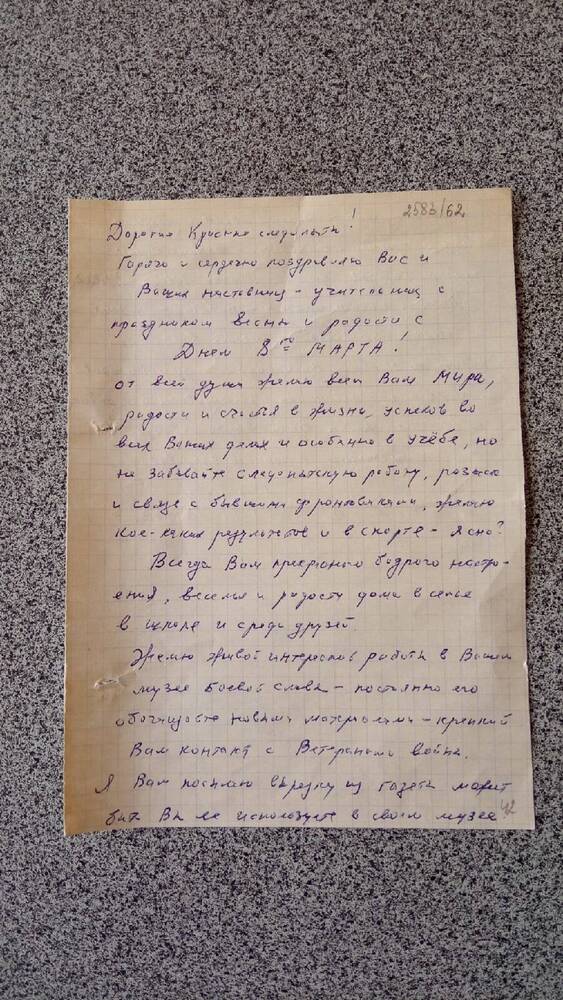 2583/62
Дорогие Красные следопыты!
Горячо и сердечно поздравляю Вас и
Ваших наставниц - учительниц с
праздником весны и радости с
Днем 8го МАРТА!
от всей души желаю всем Вам Мира,
радости и счастья в жизни, успехов во
всех Ваших делах и особенно в учёбе, но
не забывайте следопытскую работу, розыск
и связь с бывшими фронтовиками, желаю
кое-каких результатов и в спорте - Ясно?
Всегда Вам прекрасного бодрого настро-
ения, веселья и радости дома в семье
в школе и среди друзей.
Желаю живой интересной работы в Вашем
музее Боевой славы - постоянно его
обогащайте новыми материалами - крепкий
Вам контакт с Ветеранами войны.
Я Вам посылаю вырезку из газеты может
быть Вы ее используете в своем музее
42